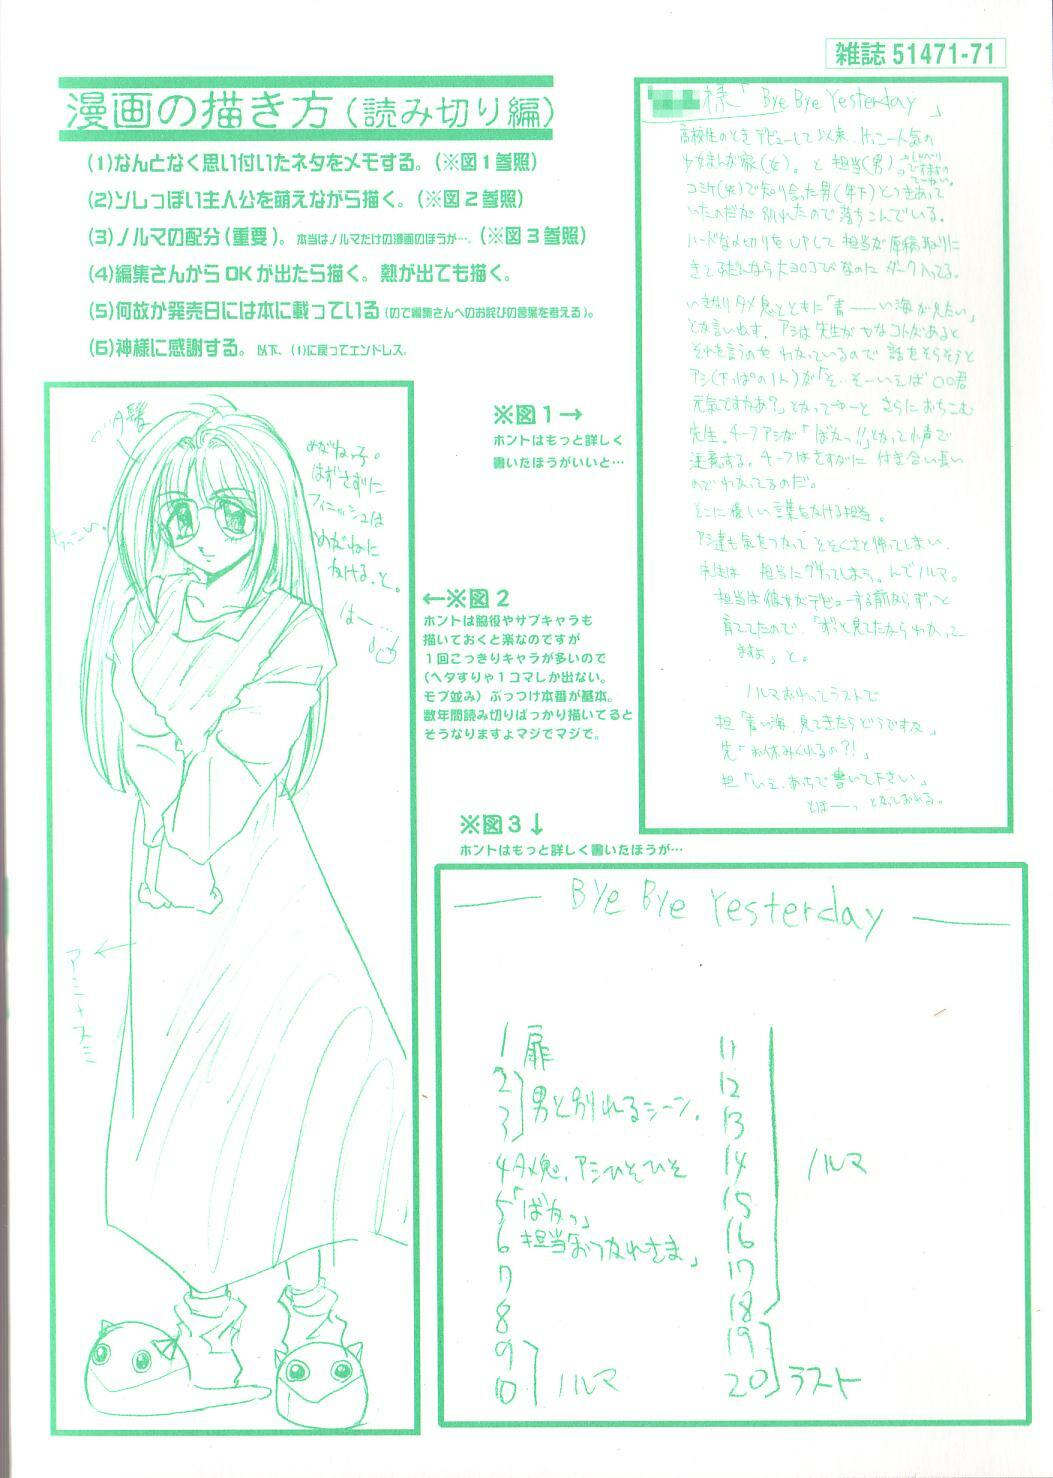 雑誌 51471-71
漫画の描き方(読み切り編)
(1)なんとなく思い付いたネタをメモする。(※図1参照)
(2)ソレっぽい主人公を萌えながら描く。(※図2参照)
(3)ノルマの配分(重要)。本当はノルマだけの漫画のほうが…。(※図3参照)
(4)編集さんからOKが出たら描く。熱が出ても描く。
(5)何故か発売日には本に載っている(ので編集さんへのお詫びの言葉を考える)。
(6)神様に感謝する。以下、(1)に戻ってエンドレス。
※図1→
ホントはもっと詳しく
書いたほうがいいと…
様「Bye Bye Yesterday」
高校生のときデビューして以来、
少女まんが家(女)。と担当(男)。
コミケ(笑)で知り合った男(年下)とつきあって
いたのだが別れたので落ちこんでいる。
ハードな〆切りをUPして担当が原稿取りに
いきなりタメ息とともに「青――い海が見たい」
とか言い出す。アシは先生がイヤなコトがあると
それを言うのをわかっているので話をそらそうと
アシ(下っぱの1人)が「そ‥そーいえば○○君
元気ですかあ?」とかってゆーとさらにおちこむ
先生。チーフアシが「ばかっ!!」とかって小声で
注意する。チーフはさすがに付き合い長い
のでわかってるのだ。
そこに優しい言葉をかける担当。
アシ達も気をつかってそそくさと帰ってしまい、
先生は担当にグチってしまう。んでノルマ。
担当は彼女がデビューする前からずーっと
育ててたので、「ずっと見てたからわかって
ますよ」と。
ノルマおわってラストで
担「青い海、見てきたらどうですか」
先「お休みくれるの?!」
担「いえ、あっちで書いて下さい」
とほ――っ とかっておわる。
ちっこい。
めがねっ子。
はずさずに
フィニッシュは
めがねに
かける、と。
はー…
←※図2
ホントは脇役やサブキャラも
描いておくと楽なのですが
1回こっきりキャラが多いので
(ヘタすりゃ1コマしか出ない。
モブ並み)ぶっつけ本番が基本。
数年間読み切りばっかり描いてると
そうなりますよマジでマジで。
※図3↓
ホントはもっと詳しく書いたほうが…
Bye Bye Yesterday
1 扉
2
3
男と別れるシーン。
4 タメ息、アシひそひそ
5 「ばかっ」
6 担当「おつかれさま」
7
8
9
10
ノルマ
11
12
13
14
15
16
17
18
ノルマ
19
20
ラスト